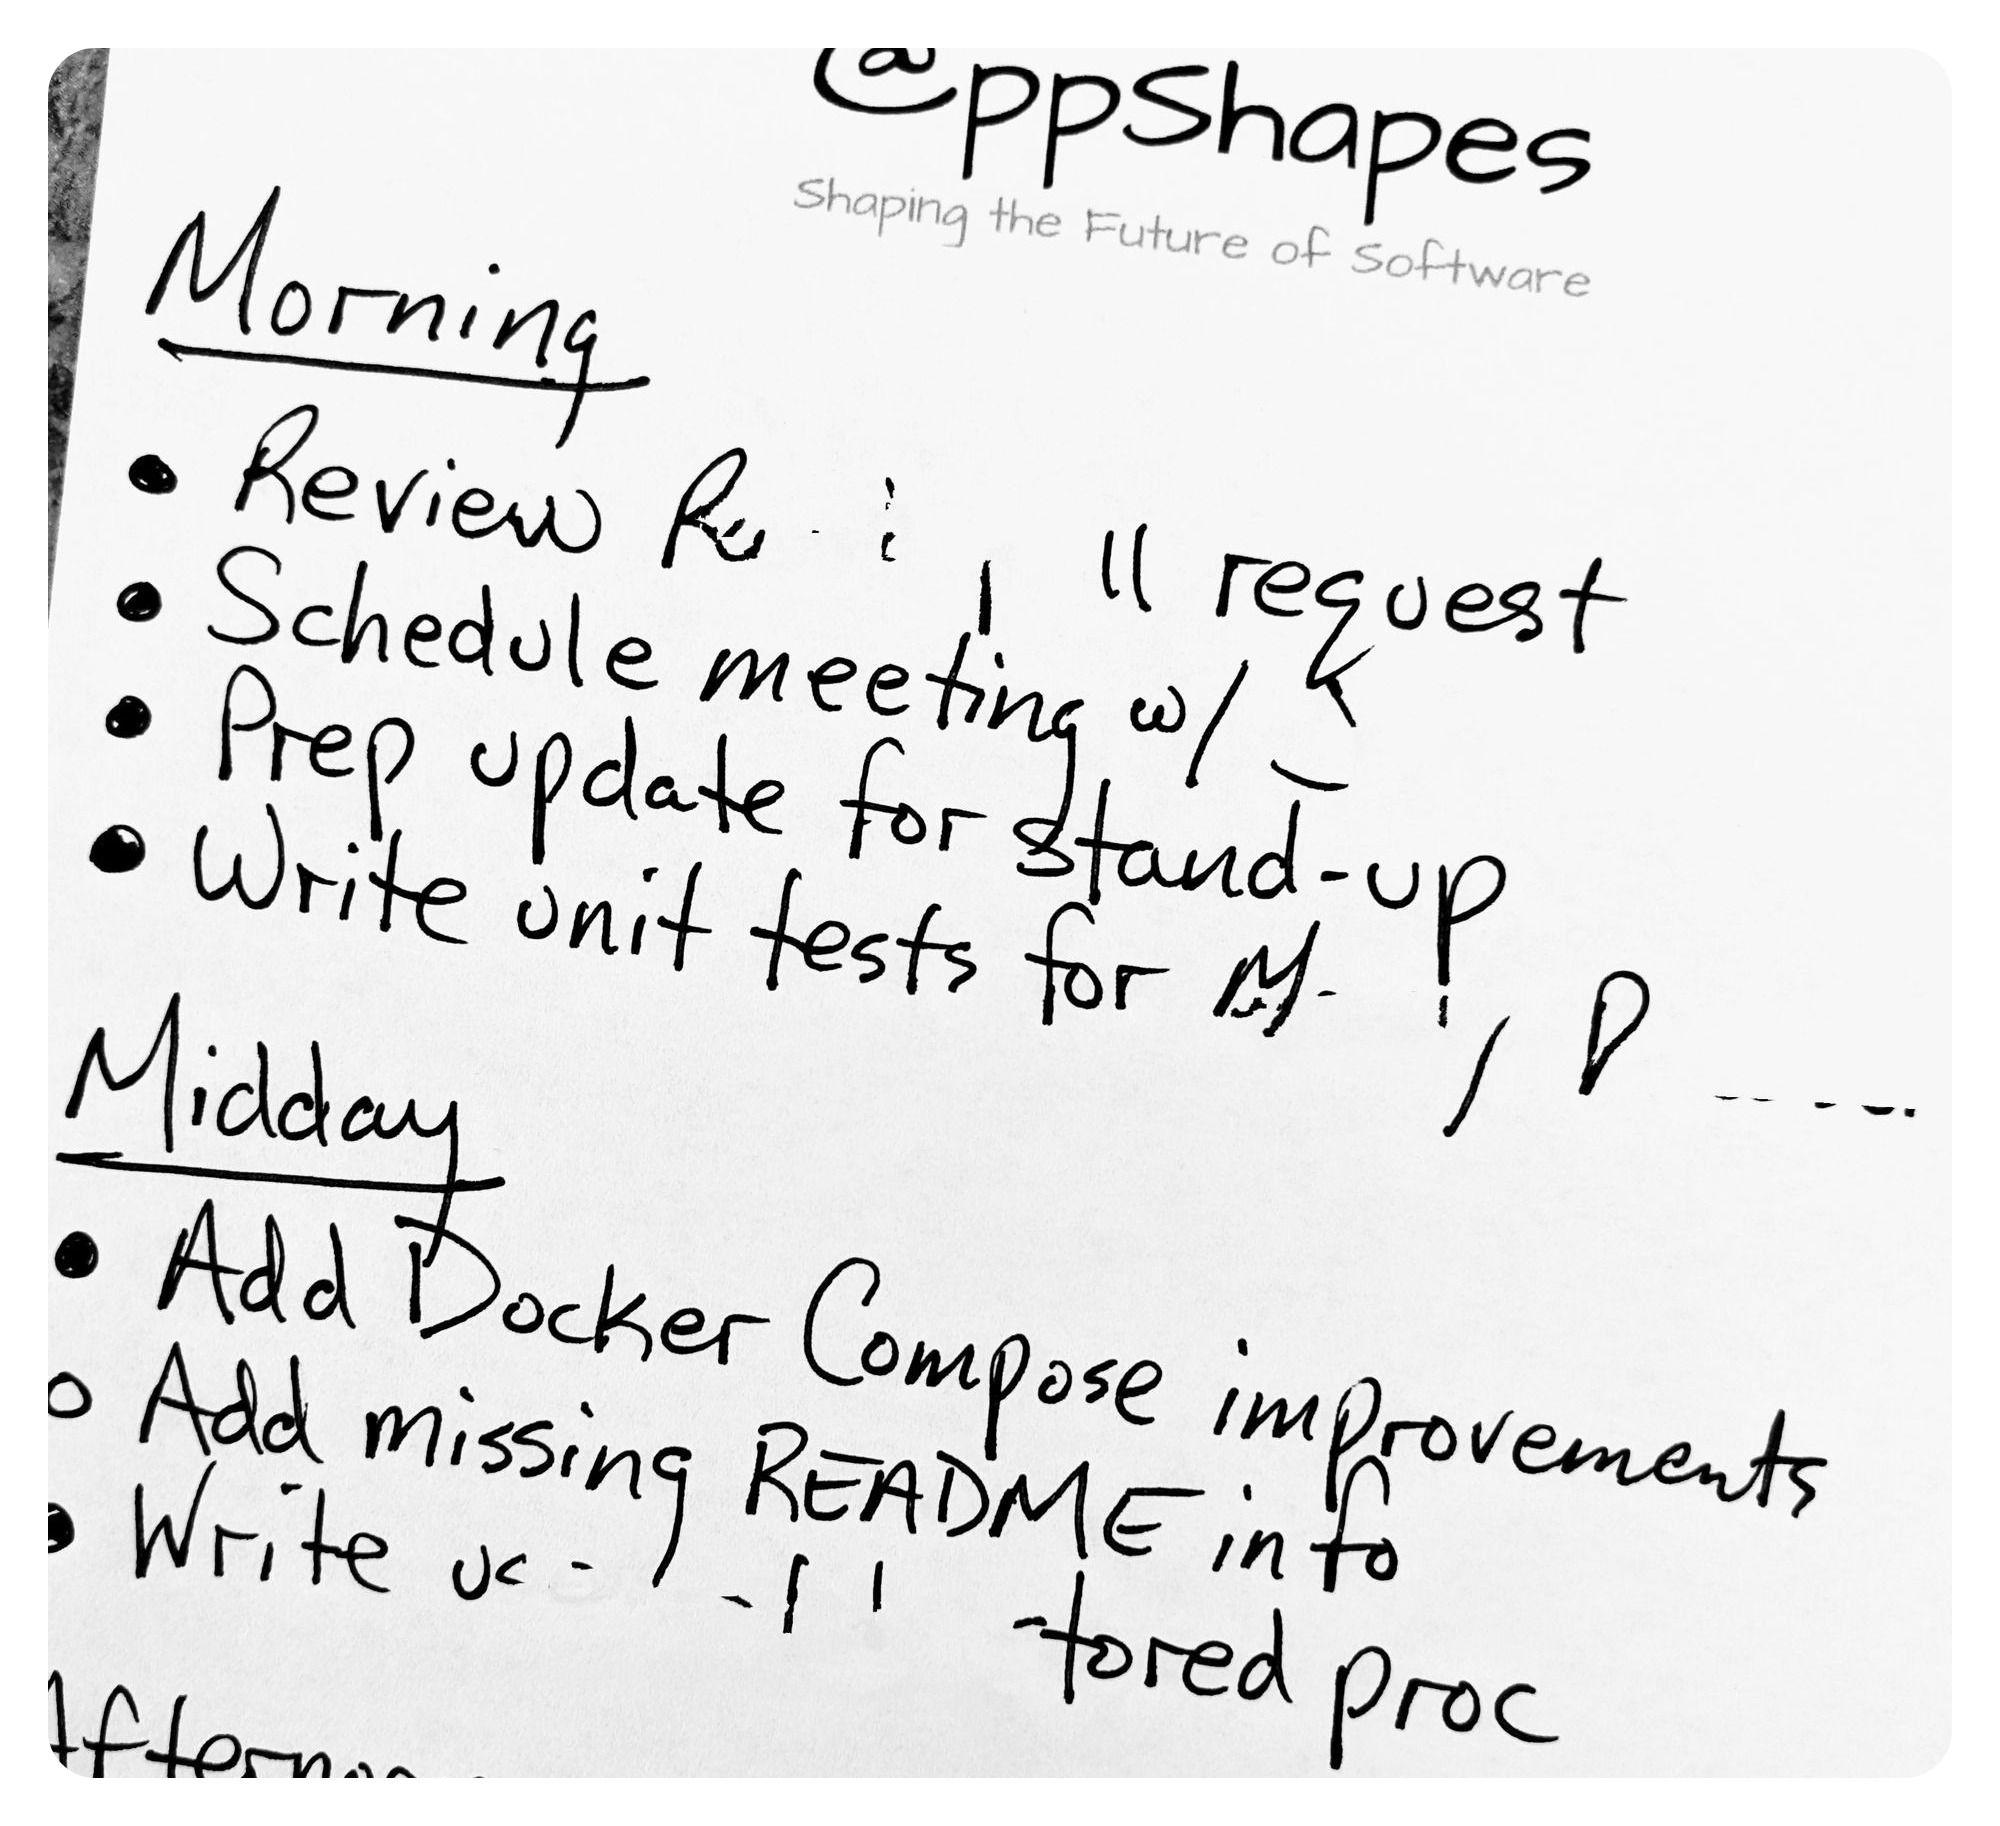 @ppShapes
Shaping the Future of Software
Morning
• Review request
• Schedule meeting w/
• Prep update for stand-up
• Write unit tests for
Midday
• Add Docker Compose improvements
○ Add missing README info
• Write proc